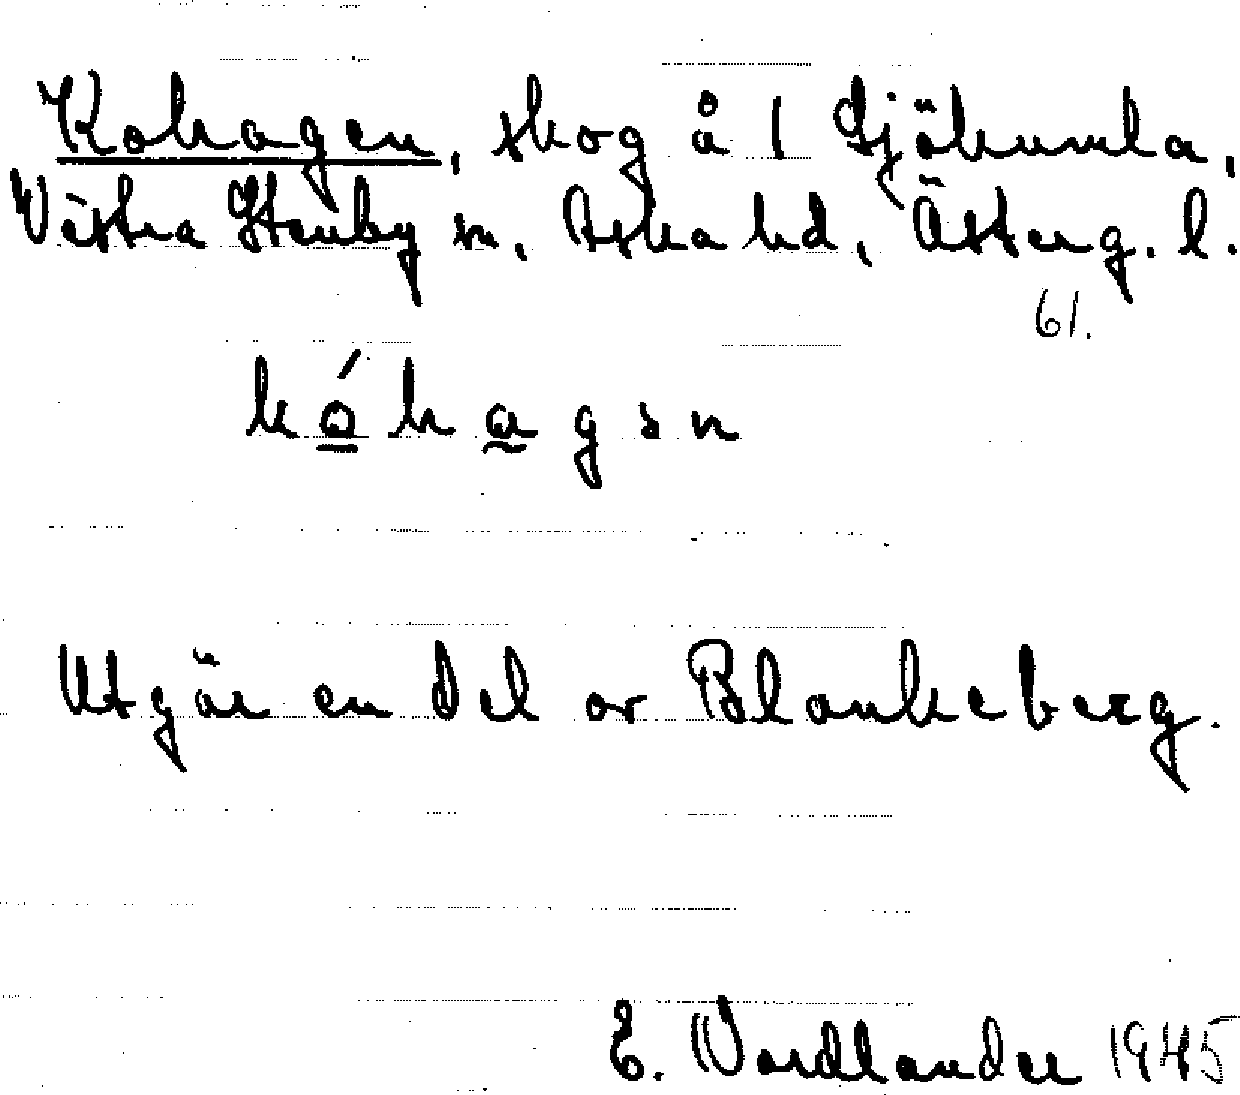 Kohagen, skog å 1 Sjöhumla,
Västra Stenby sn, Aska hd, Österg. l.
61.
kóhagən
Utgör en del av Blankeberg.
E. Nordlander 1945